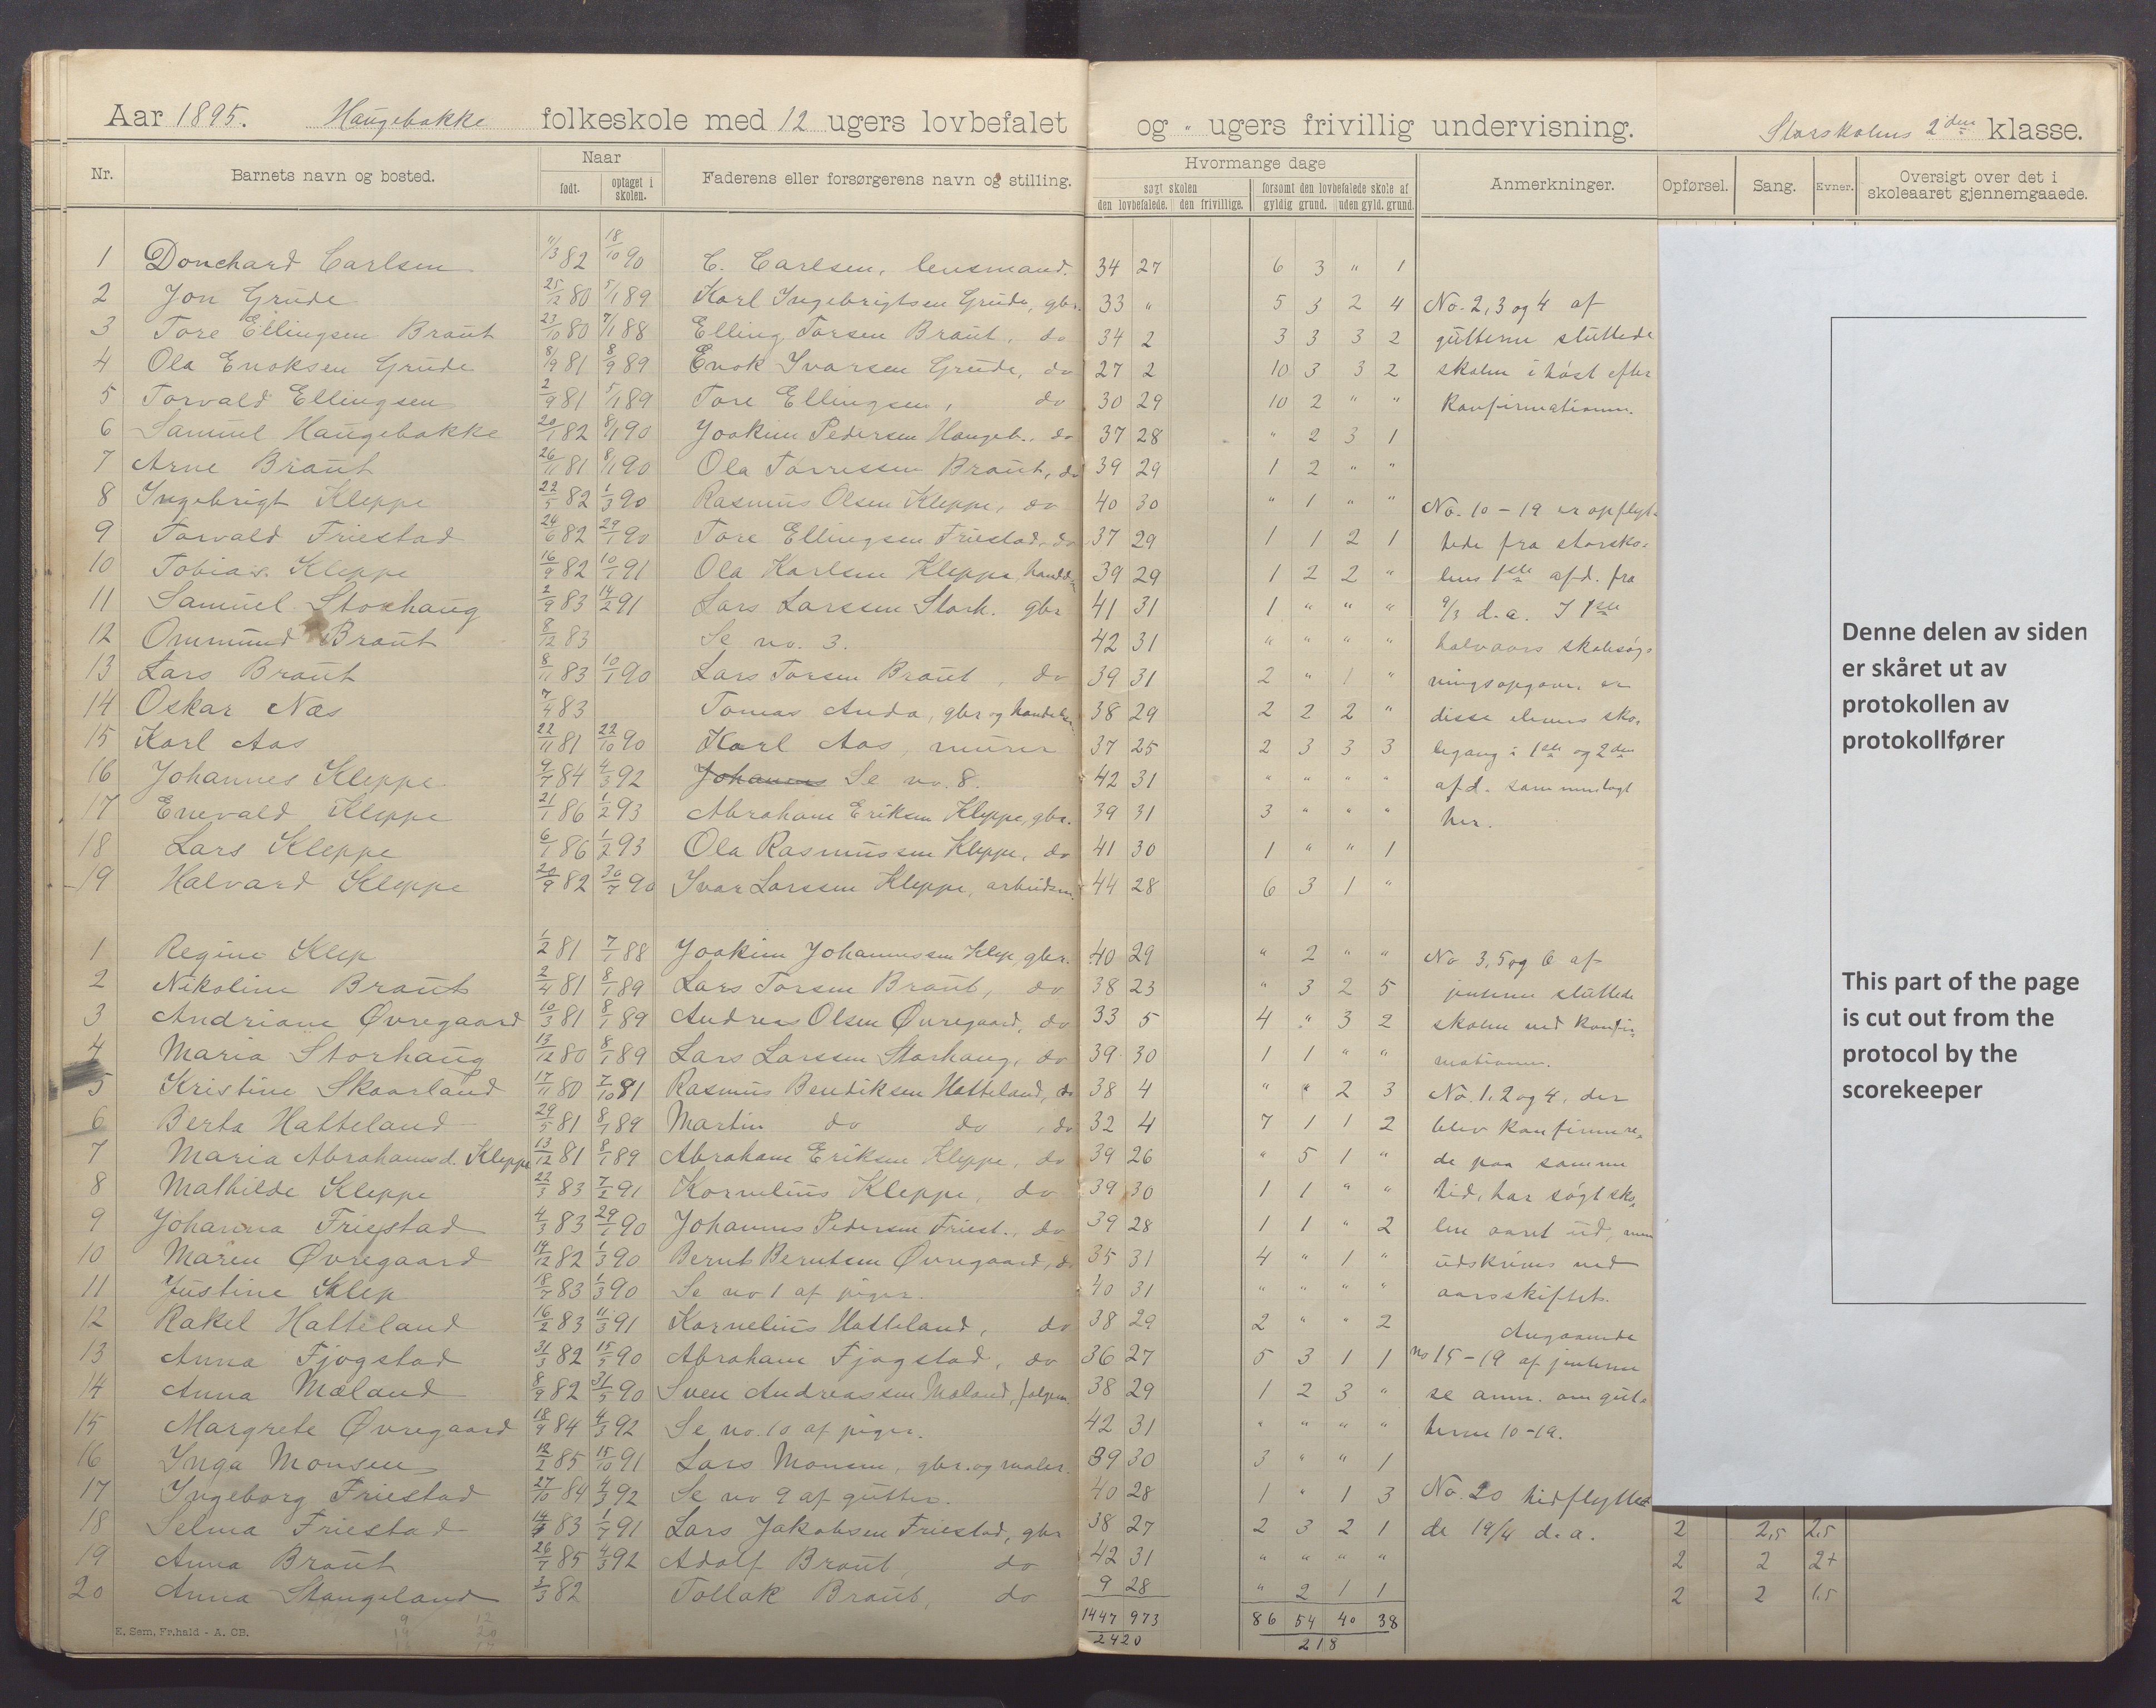 Aar 1895. Haugebakke folkeskole med 12 ugers lovbefalet og " ugers frivillig undervisning. Storskolens 2den klasse.
Nr. Barnets navn og bosted. Naar født. optaget i skolen. Faderens eller forsørgerens navn og stilling. Hvormange dage søgt skolen den lovbefalede. den frivillige. forsømt den lovbefalede skole af gyldig grund. uden gyld. grund. Anmerkninger. Opførsel. Sang. Evner. Oversigt over det i skoleaaret gjennemgaaede.
1 Donchard Carlsen 11/3 82 18/10 90 C. Carlsen, lensmand. 34 27 6 3 " 1
2 Jon Grude 25/12 80 5/1 89 Karl Ingebrigtsen Grude, gbr. 33 " 5 3 2 4 No. 2, 3 og 4 af
3 Tore Ellingsen Braut 23/10 80 7/1 88 Elling Torsen Braut, do 34 2 3 3 3 2 gutterne sluttede
4 Ola Enoksen Grude 8/9 81 8/9 89 Enok Ivarsen Grude, do 27 2 10 3 3 2 skolen i høst efter
5 Torvald Ellingsen 2/9 81 5/1 89 Tore Ellingsen, do 30 29 10 2 " " konfirmationen.
6 Samuel Haugebakke 20/1 82 8/1 90 Joakim Pedersen Haugeb., do 37 28 " 2 3 1
7 Arne Braut 26/11 81 8/1 90 Ola Torressen Braut, do 39 29 1 2 " "
8 Ingebrigt Kleppe 22/5 82 1/3 90 Rasmus Olsen Kleppe, do 40 30 " 1 " " No. 10 - 19 er opflyt-
9 Torvald Friestad 24/6 82 29/1 90 Tore Ellingsen Friestad, do 37 29 1 1 2 1 tede fra storsko-
10 Tobias Kleppe 16/9 82 10/1 91 Ola Karlsen Kleppe, handels 39 29 1 2 2 " lens 1ste afd. fra
11 Samuel Storhaug 2/9 83 14/2 91 Lars Larssen Storh. gbr 41 31 1 " " " 9/3 d.a. I 1ste
12 Ommund Braut 8/12 83 Se no. 3. 42 31 " " " " halvaars skolesøg-
13 Lars Braut 8/11 83 10/1 90 Lars Torsen Braut, do 39 31 2 " 1 " ningsopgave er
14 Oskar Næs 7/4 83 Tomas Anda, gbr og handelsm. 38 29 2 2 2 " disse elevers sko-
15 Karl Aas 22/11 81 22/10 90 Karl Aas, murer 37 25 2 3 3 3 legang i 1ste og 2den
16 Johannes Kleppe 9/7 84 4/3 92 Johannes Se no. 8. 42 31 " " " " afd. sammenlagt
17 Enevald Kleppe 21/1 86 1/2 93 Abraham Eriksen Kleppe, gbr. 39 31 3 " " " her.
18 Lars Kleppe 6/1 86 1/2 93 Ola Rasmussen Kleppe, do 41 30 1 " " 1
19 Halvard Kleppe 20/9 82 30/7 90 Ivar Larssen Kleppe, arbeidsm. 44 28 6 3 1 "
1 Regine Klep 1/2 81 7/1 88 Joakim Johannessen Klep, gbr. 40 29 " 2 " " No 3, 5 og 6 af
2 Nikoline Braut 2/4 81 8/1 89 Lars Torsen Braut, do 38 23 " 3 2 5 jenterne sluttede
3 Andriane Øvregaard 10/3 81 8/1 89 Andreas Olsen Øvregaard, do 33 5 4 " 3 2 skolen ved konfir-
4 Maria Storhaug 13/12 80 8/1 89 Lars Larssen Storhaug, do 39 30 1 1 " " mationen.
5 Kristine Skaarland 17/11 80 7/10 81 Rasmus Bendiksen Hatteland, do 38 4 " " 2 3 No. 1, 2 og 4, der
6 Berta Hatteland 29/5 81 8/1 89 Martin do do, do 32 4 7 1 1 2 blev konfirmere-
7 Maria Abrahamsd. Kleppe 13/12 81 8/1 89 Abraham Eriksen Kleppe, do 39 26 " 5 1 " de paa samme
8 Mathilde Kleppe 22/3 83 7/2 91 Kornelius Kleppe, do 39 30 1 1 " " tid, har søgt sko-
9 Johanna Friestad 4/3 83 29/1 90 Johannes Pedersen Friest., do 39 28 1 1 " 2 len aaret ud, men
10 Maren Øvregaard 14/12 82 1/3 90 Bernt Berntsen Øvregaard, do 35 31 4 1 " udskrives ved
11 Justine Klep 18/7 83 1/3 90 Se no. 1 af piger. 40 31 " " " " aarsskiftet.
12 Rakel Hatteland 16/2 83 11/3 91 Kornelius Hatteland, do 38 29 2 " " 2 Angaaende
13 Anna Fjogstad 31/3 82 15/5 90 Abraham Fjogstad, do 36 27 5 3 1 1 no 15 - 19 af jenterne
14 Anna Mæland 8/9 82 31/5 90 Sven Andreassen Mæland, 38 29 1 2 3 " se anm. om gut-
15 Margrete Øvregaard 18/9 84 4/3 92 Se no. 10 af piger. 42 31 " " " " terne 10-19.
16 Inga Monsen 12/2 85 15/10 91 Lars Monsen, gbr. og maler. 39 30 3 " " 1
17 Ingeborg Friestad 27/10 84 4/3 92 Se no 9 af gutter. 40 28 1 " 1 3 No 20 tidflytte-
18 Selma Friestad 14/4 83 1/7 91 Lars Jakobsen Friestad, gbr 38 27 2 3 2 1 de 19/4 d.a. 2 2,5 2,5
19 Anna Braut 26/7 85 4/3 92 Adolf Braut, do 42 31 " " " " 2 2 2+
20 Anna Stangeland 3/3 82 Tollak Braut, do 9 28 " 2 1 1 2 2 1,5
1447 973 86 54 40 38
2420 218
E. Sem, Fr.hald - A. CB.
Denne delen av siden
er skåret ut av
protokollen av
protokollfører
This part of the page
is cut out from the
protocol by the
scorekeeper